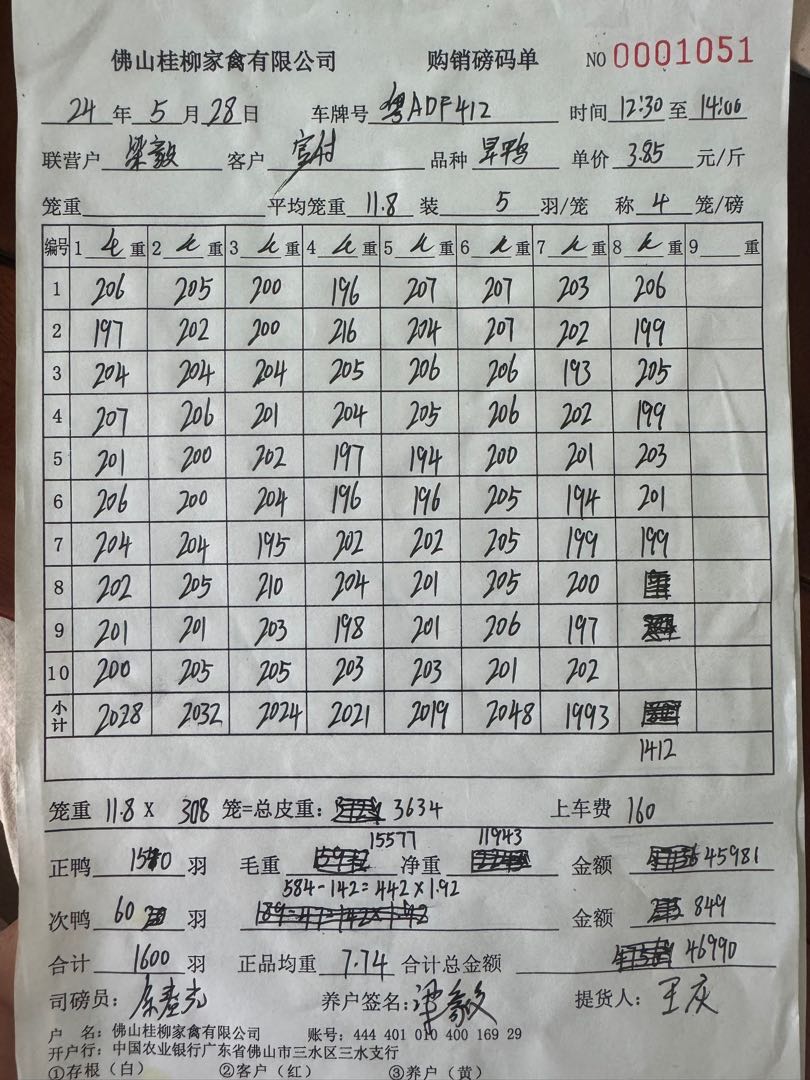 佛山桂柳家禽有限公司 购销磅码单 NO 0001051
24 年 5 月 28 日 车牌号 粤ADF412 时间 12:30 至 14:00
联营户 梁毅 客户 品种 旱鸭 单价 3.85 元/斤
笼重 平均笼重 11.8 装 5 羽/笼 称 4 笼/磅
编号 1 毛 重 2 毛 重 3 毛 重 4 毛 重 5 毛 重 6 毛 重 7 毛 重 8 毛 重 9 重
1 206 205 200 196 207 207 203 206
2 197 202 200 216 204 207 202 199
3 204 204 204 205 206 206 193 205
4 207 206 201 204 205 206 202 199
5 201 200 202 197 194 200 201 203
6 206 200 204 196 196 205 194 201
7 204 204 195 202 202 205 199 199
8 202 205 210 204 201 205 200
9 201 201 203 198 201 206 197
10 200 205 205 203 203 201 202
小计 2028 2032 2024 2021 2019 2048 1993
1412
笼重 11.8 X 308 笼=总皮重: 3634 上车费 160
15577 11943
正鸭 1540 羽 毛重 净重 金额 45981
584-142=442×1.92
次鸭 60 羽 金额 849
合计 1600 羽 正品均重 7.74 合计总金额 46990
司磅员: 养户签名: 梁毅 提货人: 王庆
户 名: 佛山桂柳家禽有限公司 账号: 444 401 010 400 169 29
开户行: 中国农业银行广东省佛山市三水区三水支行
①存根(白) ②客户(红) ③养户(黄)